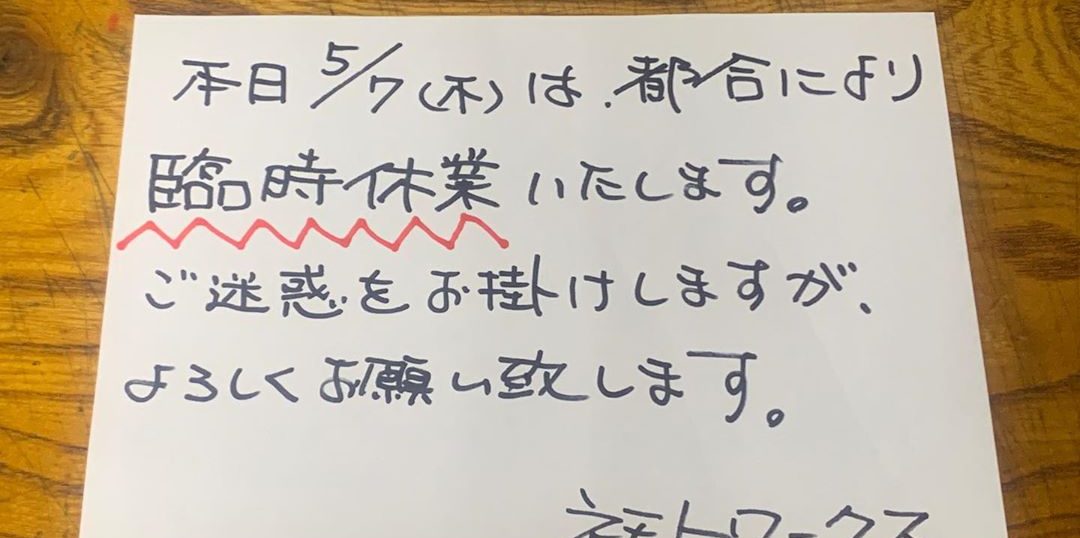 本日 5/7(木)は、都合により
臨時休業いたします。
ご迷惑をお掛けしますが、
よろしくお願い致します。
ネモトワークス